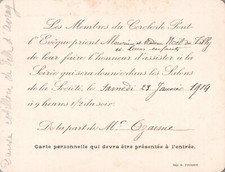 Les Membres du Cercle de Pont
l'Evêque prient Monsieur et Madame
et leurs enfants
de leur faire l'honneur d'assister à la
Soirée qui sera donnée dans les Salons
de la Société, le Samedi 23 Janvier 1914
à 9 heures 1/2 du soir.
De la part de Mr
Carte personnelle qui devra être présentée à l'entrée.